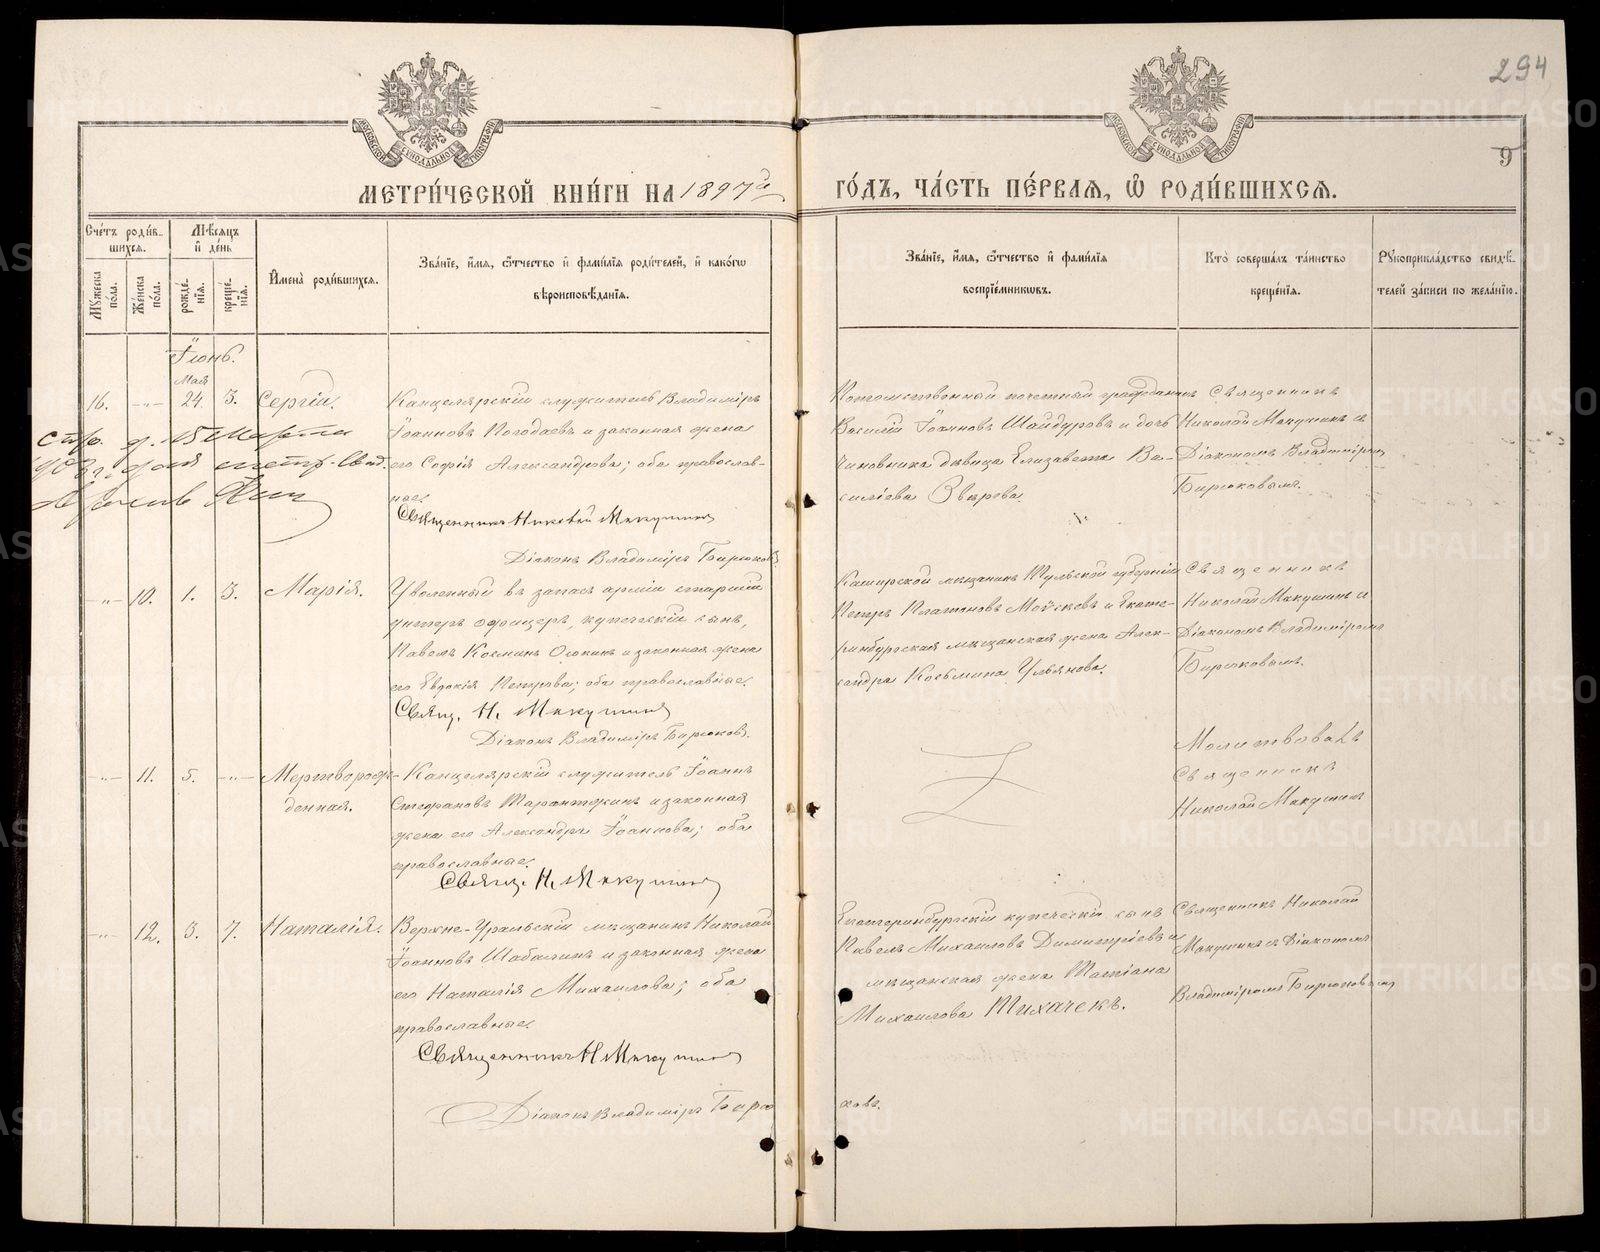 294
9
МОСКОВСКОЙ СѴНОДАЛЬНОЙ ТИПОГРАФІИ
МОСКОВСКОЙ СѴНОДАЛЬНОЙ ТИПОГРАФІИ
МЕТРИ́ЧЕСКОЙ КНИ́ГИ НА 1897й ГО́ДЪ, ЧА́СТЬ ПЕ́РВАЯ, Ѡ РОДИ́ВШИХСЯ.
Сче́тъ роди́вшихся.
Мꙋжеска по́ла.
Женска по́ла.
Мѣсяцъ и де́нь
рожде́нїя.
креще́нїя.
Имена̀ роди́вшихся.
Зва́нїе, и́мя, ѻ҆́тчество и фами́лїя роди́телей, и како́гѡ вѣроисповѣ́данїя.
Зва́нїе, и́мя, ѻ҆́тчество и фами́лїя воспрїе́мникѡвъ.
Кто̀ соверша́лъ та́инство креще́нїя.
Рꙋкоприкла́дство свидѣ́телей за́писи по жела́нїю.
Іюнь.
Мая
16. -„- 24. 3. Сергій.
Канцелярскій служитель Владиміръ
Іоанновъ Погодаевъ и законная жена
его Софія Александрова; оба православ-
ные.
Священникъ Николай Макушинъ
Діаконъ Владиміръ Бирюковъ
15 Марта
Потомственный почетный гражданинъ
Василій Іоанновъ Шайдуровъ и дочь
чиновника дѣвица Елизавета Ва-
сильева Звѣрева.
Священникъ
Николай Макушинъ съ
Діакономъ Владиміромъ
Бирюковымъ.
-„- 10. 1. 3. Марія.
Уволенный въ запасъ арміи старшій
унтеръ офицеръ, купеческій сынъ,
Павелъ Косминъ Осокинъ и законная жена
его Евдокія Петрова; оба православные.
Свящ. Н. Макушинъ
Діаконъ Владиміръ Бирюковъ.
Каширской мѣщанинъ Тульской губерніи
Петръ Платоновъ Мойсеевъ и Екате-
ринбургская мѣщанская жена Алек-
сандра Косьмина Ульянова.
Священникъ
Николай Макушинъ и
Діакономъ Владиміромъ
Бирюковымъ.
-„- 11. 5. -„- Мертворож-
денная.
Канцелярскій служитель Іоаннъ
Стефановъ Таранжинъ и законная
жена его Александра Іоаннова; оба
православные.
Свящ. Н. Макушинъ
Молитвовалъ
Священникъ
Николай Макушинъ
-„- 12. 3. 7. Наталія.
Верхне-Уральскій мѣщанинъ Николай
Іоанновъ Шабалинъ и законная жена
его Наталія Михаилова; оба
православные.
Священникъ Н Макушинъ
Діаконъ Владиміръ Бирюковъ.
Екатеринбургскій купеческій сынъ
Павелъ Михаиловъ Димитріевъ и
мѣщанская жена Татіана
Михаилова Тихачекъ.
Священникъ Николай
Макушинъ съ Діакономъ
Владиміромъ Бирюковымъ
METRIKI.GASO-URAL.RU